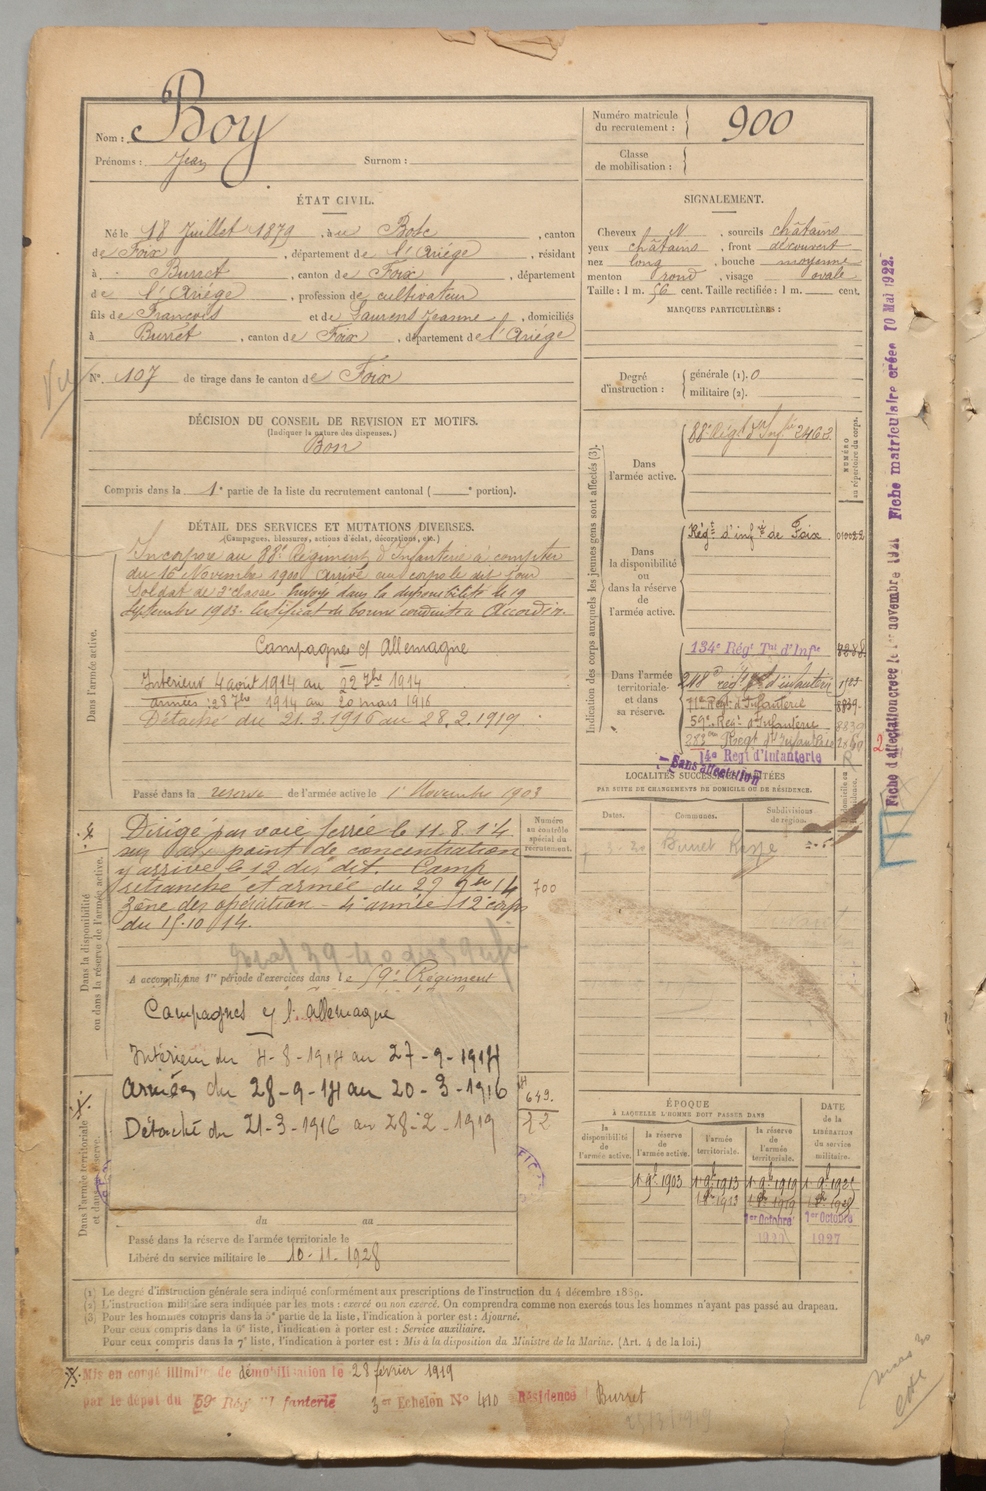 Nom : Boy
Prénoms : Jean Surnom :
Numéro matricule du recrutement : 900
Classe de mobilisation :
ÉTAT CIVIL.
Né le 18 Juillet 1879, à Bosc, canton
de Foix, département de l'Ariége, résidant
à Burret, canton de Foix, département
de l'Ariége, profession de cultivateur
fils de François et de Laurens Jeanne, domiciliés
à Burret, canton de Foix, département de l'Ariége
Vu
N° 107 de tirage dans le canton de Foix
SIGNALEMENT.
Cheveux N, sourcils châtains
yeux châtains, front découvert
nez long, bouche moyenne
menton rond, visage ovale
Taille : 1 m. 56 cent. Taille rectifiée : 1 m. cent.
MARQUES PARTICULIÈRES :
Degré d'instruction : générale (1). 0
militaire (2).
DÉCISION DU CONSEIL DE REVISION ET MOTIFS.
(Indiquer la nature des dispenses.)
Bon
Compris dans la 1e partie de la liste du recrutement cantonal ( e portion).
DÉTAIL DES SERVICES ET MUTATIONS DIVERSES.
(Campagnes, blessures, actions d'éclat, décorations, etc.)
Dans l'armée active.
Incorporé au 88e Régiment d'Infanterie à compter
du 16 Novembre 1900 Arrivé au corps le dit jour
Soldat de 2e classe Envoyé dans la disponibilité le 19
Septembre 1903. Certificat de bonne conduite Accordé
Campagne d'Allemagne
Intérieur 4 août 1914 au 27 7bre 1914
armées : 28 7bre 1914 au 20 mars 1916
Détaché du 21.3.1916 au 28.2.1919
Passé dans la réserve de l'armée active le 1er Novembre 1903
Indication des corps auxquels les jeunes gens sont affectés (3).
NUMÉRO au répertoire du corps.
Dans l'armée active. 88e Régt d'Infie 2463
Dans la disponibilité ou dans la réserve de l'armée active. Régt d'infie de Foix
Dans l'armée territoriale et dans sa réserve.
134e Régt Tal d'Infie
248e regt d'infanterie
71e Regt d'Infanterie 8839
59e Regt d'Infanterie 8839
Regt d'Infanterie
14e Regt d'Infanterie
Sans affectation
Fiche d'affectation créée le 1er novembre 1921 Fiche matriculaire créée 10 Mai 1922.
Dans la disponibilité ou dans la réserve de l'armée active.
Numéro au contrôle spécial du recrutement.
Dirigé par voie ferrée le 11.8.14
sur point de concentration
y arrivé le 12 du dit. Camp
retranché et armée du 29 14
Zône des opération - 4e armée 12e corps
du 15.10.14.
700
A accompli une 1re période d'exercices dans le 59e Régiment
Campagnes c/ l'allemagne
Intérieur du 4-8-1914 au 27-9-1914
Armées du 28-9-14 au 20-3-1916
Détaché du 21-3-1916 au 28-2-1919
649.
Dans l'armée territoriale et dans sa réserve.
du au
Passé dans la réserve de l'armée territoriale le
Libéré du service militaire le 10-11-1928
LOCALITÉS SUCCESSIVES HABITÉES
PAR SUITE DE CHANGEMENTS DE DOMICILE OU DE RÉSIDENCE.
Dates. Communes. Subdivisions de région.
Burret
ÉPOQUE
À LAQUELLE L'HOMME DOIT PASSER DANS
DATE de la LIBÉRATION du service militaire.
la disponibilité de l'armée active. la réserve de l'armée active. l'armée territoriale. la réserve de l'armée territoriale.
1 9b 1903 1 9b 1913 1 9b 1919
1er Octobre 1er Octobre
1927
(1) Le degré d'instruction générale sera indiqué conformément aux prescriptions de l'instruction du 4 décembre 1889.
(2) L'instruction militaire sera indiquée par les mots : exercé ou non exercé. On comprendra comme non exercés tous les hommes n'ayant pas passé au drapeau.
(3) Pour les hommes compris dans la 5e partie de la liste, l'indication à porter est : Ajourné.
Pour ceux compris dans la 6e liste, l'indication à porter est : Service auxiliaire.
Pour ceux compris dans la 7e liste, l'indication à porter est : Mis à la disposition du Ministre de la Marine. (Art. 4 de la loi.)
Mis en congé illimité de démobilisation le 28 février 1919
par le dépôt du 59e Régt d'Infanterie 3er Echelon N° 410 Résidence Burret